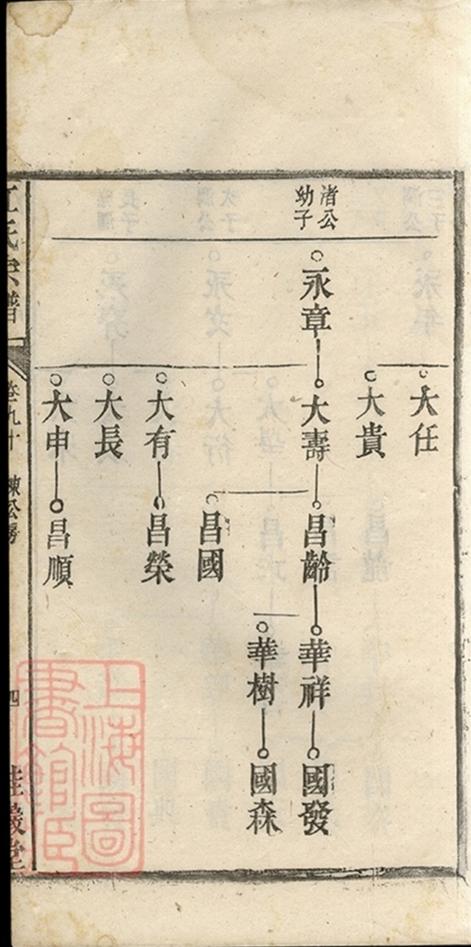 渚公
幼子
永章
大任
大貴
大壽
大有
大長
大申
昌齡
昌國
昌榮
昌順
華祥
華樹
國發
國森
氏宗譜
卷九十
公房
四
上海圖
書館臧